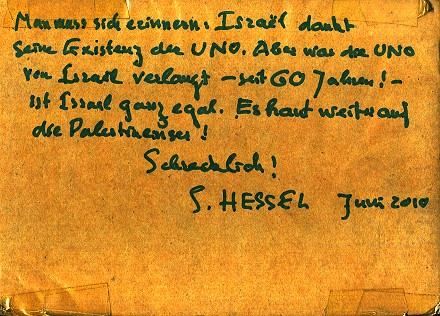 Man muss sich erinnern: Israël dankt
seine Existenz der UNO. Aber was die UNO
von Israel verlangt – seit 60 Jahren! –
ist Israel ganz egal. Es haut weiter auf
die Palestinenser!
Schrecklich!
S. HESSEL Juni 2010